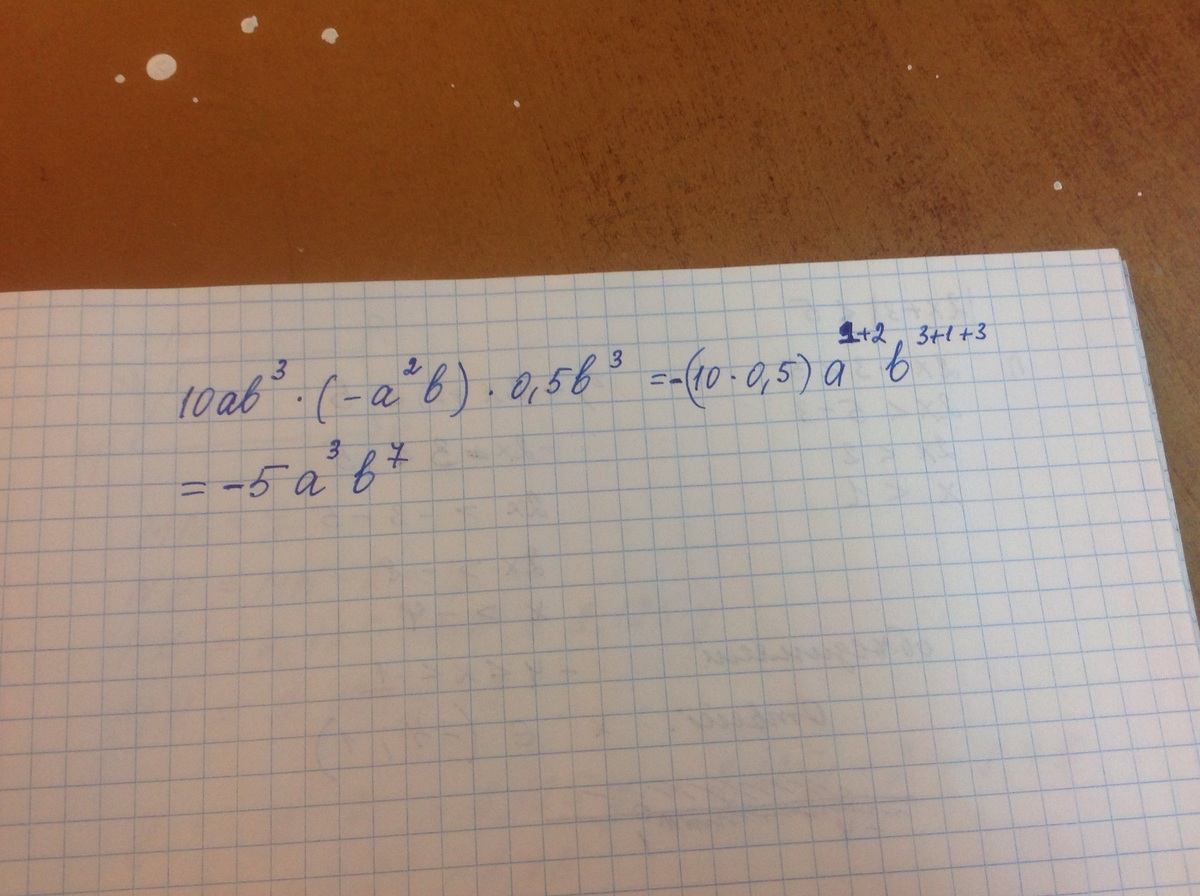 10ab³ · (-a²b) · 0,5b³ = -(10 · 0,5) a¹⁺² b³⁺¹⁺³
= -5 a³ b⁷